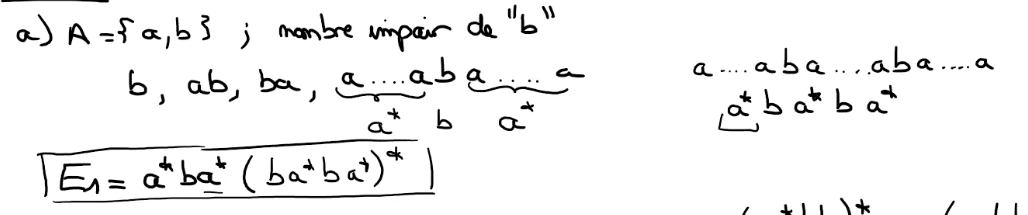 a) A = {a,b} ; nombre impair de "b"
b, ab, ba, a....aba....a
a* b a*
a....aba....aba....a
a* b a* b a*
E1 = a*ba* (ba*ba*)*